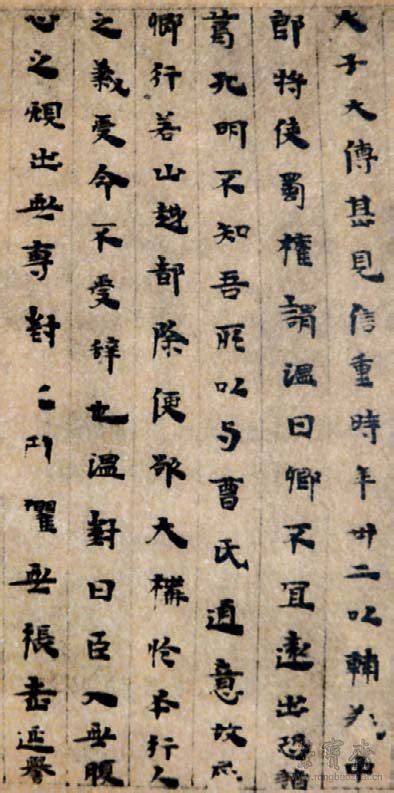 大子大傅甚見信重時年卅二以輔義中
郎將使蜀權謂溫曰卿不宜遠出恐諸
葛孔明不知吾所以与曹氏通意故
卿行若山越都除便欲大構於丕行人
之義受命不受辭也溫對曰臣入無腹
心之規出無專對之用懼無張老延譽
www.rongbaozhai.cn